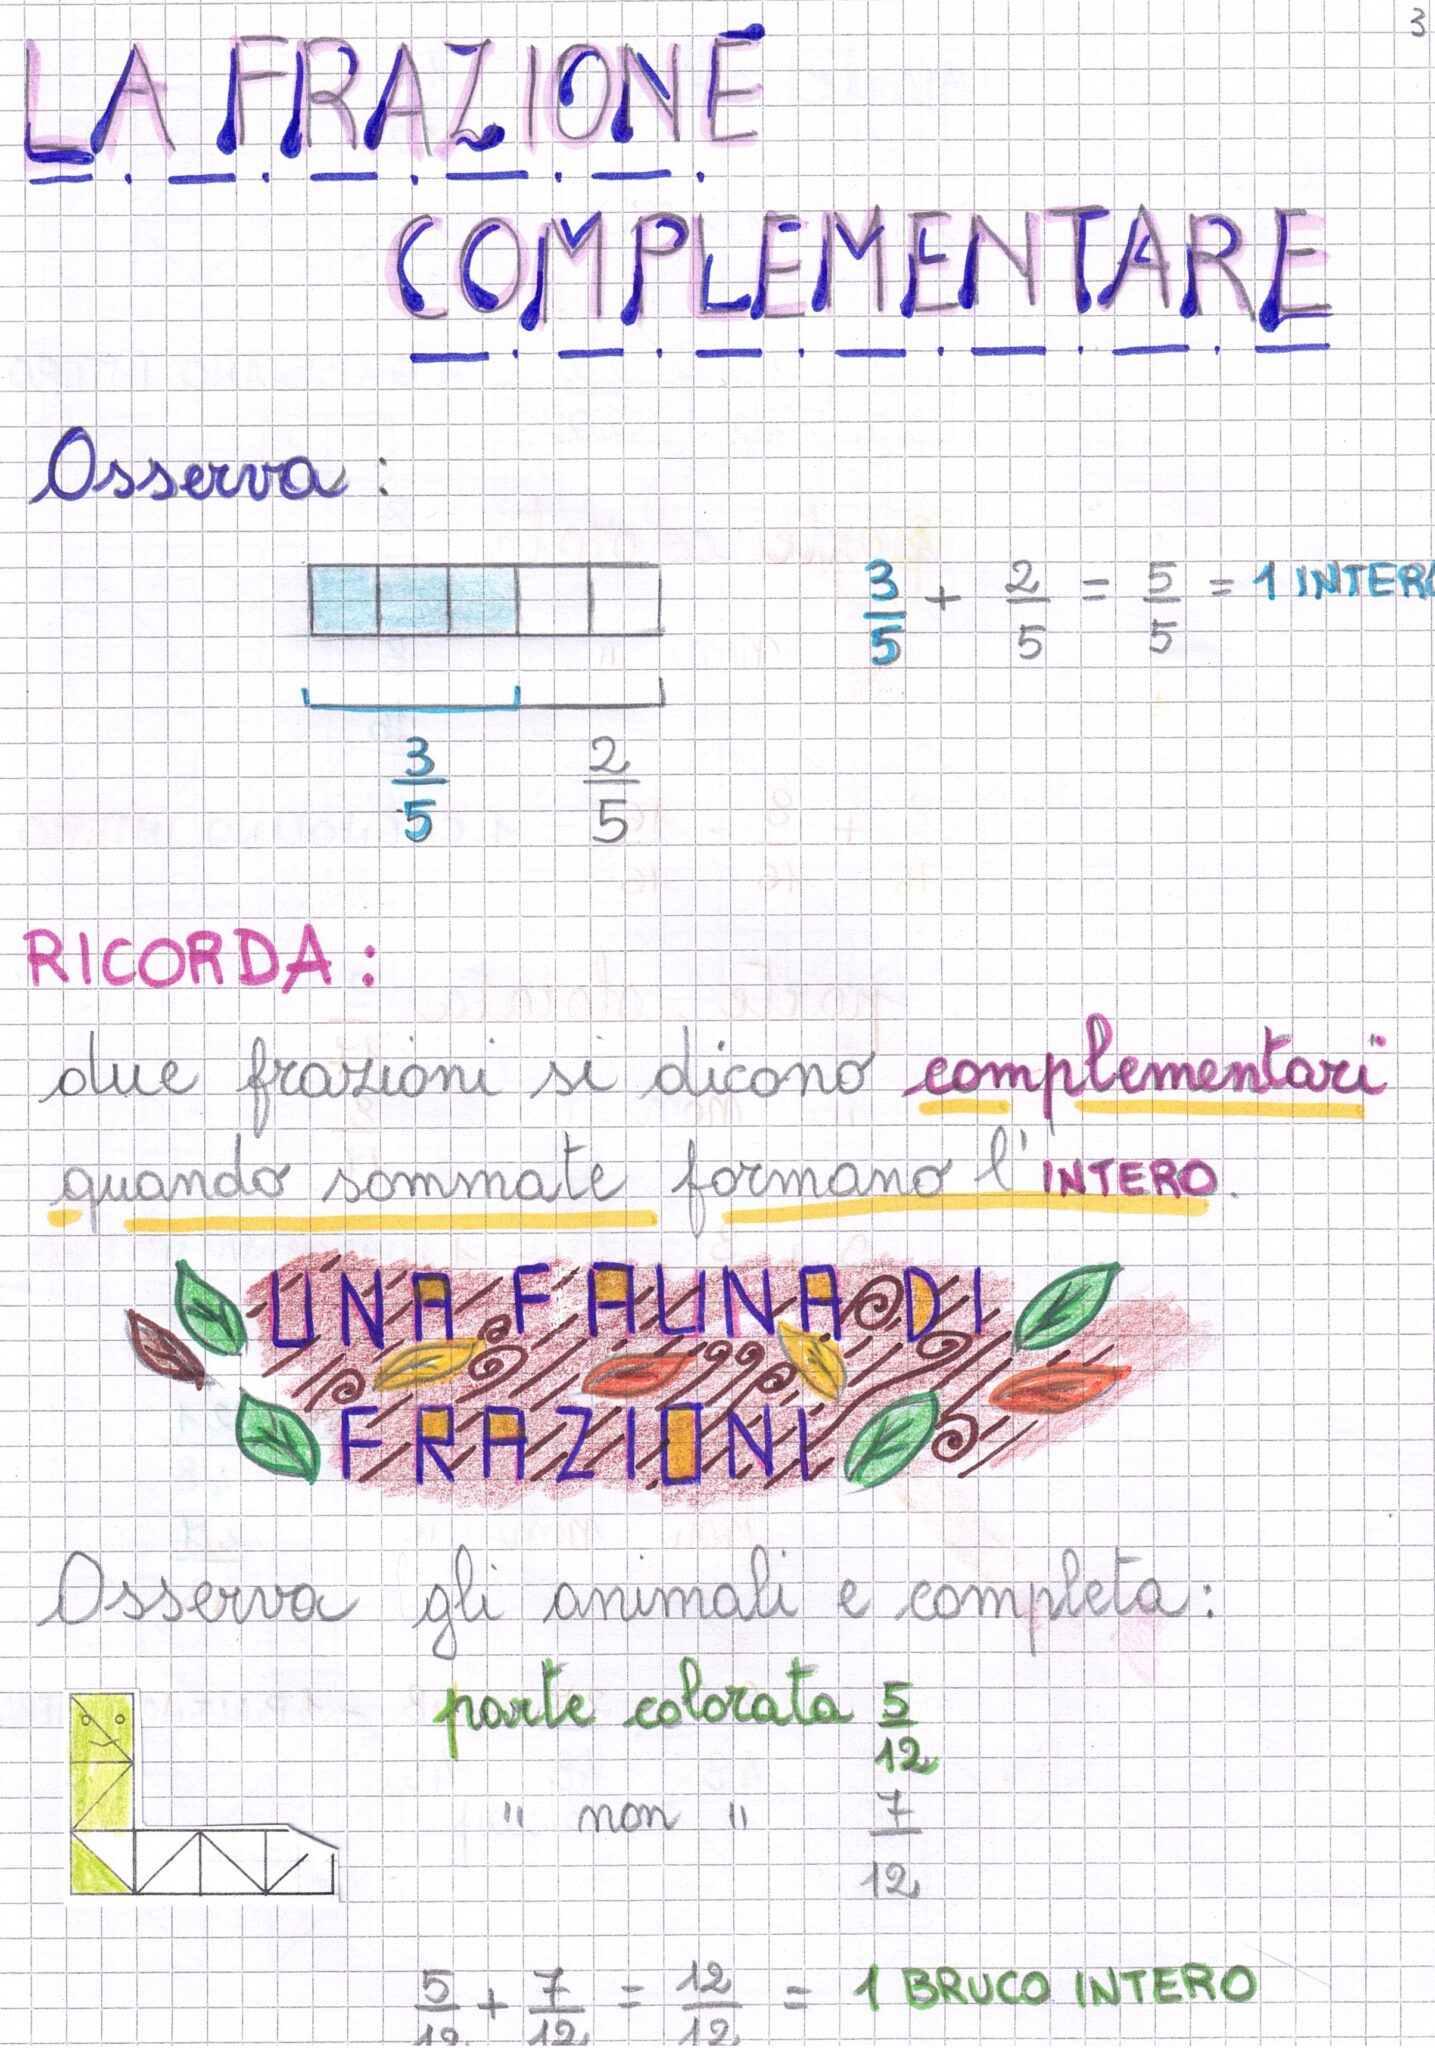 3
LA FRAZIONE
COMPLEMENTARE
Osserva:
3/5 + 2/5 = 5/5 = 1 INTERO
3/5 2/5
RICORDA:
due frazioni si dicono complementari
quando sommate formano l'INTERO.
UNA FAUNA DI
FRAZIONI
Osserva gli animali e completa:
parte colorata 5/12
" non " 7/12
5/12 + 7/12 = 12/12 = 1 BRUCO INTERO